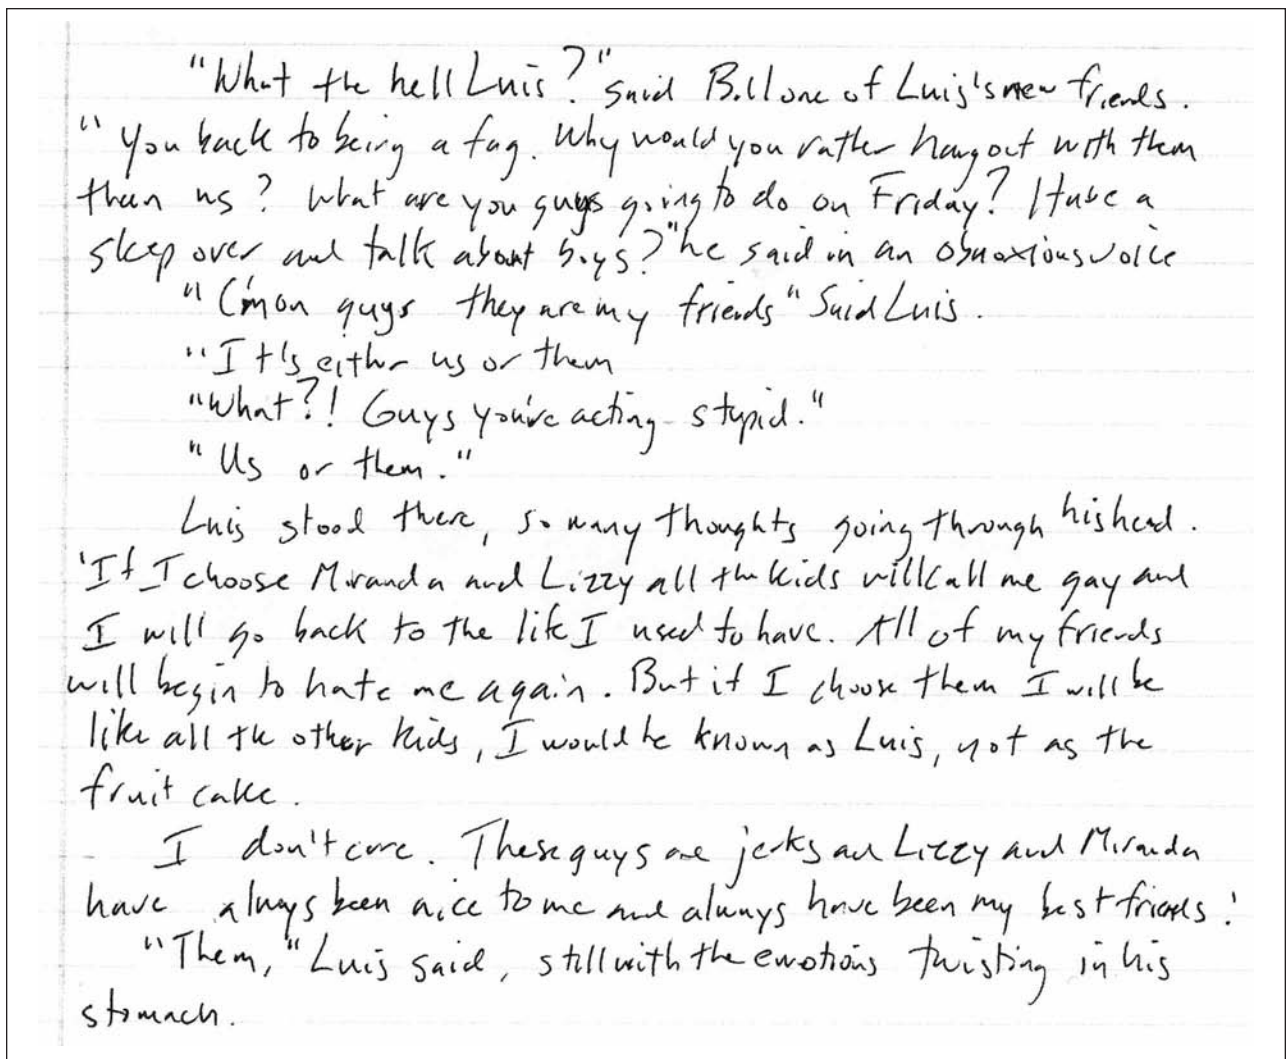 "What the hell Luis?" said Bill one of Luis's new friends.
" You back to being a fag. Why would you rather hang out with them
than us? What are you guys going to do on Friday? Have a
sleep over and talk about boys?" he said in an obnoxious voice
"C'mon guys they are my friends" Said Luis.
"It's either us or them
"What?! Guys you're acting stupid."
"Us or them."
Luis stood there, so many thoughts going through his head.
'If I choose Miranda and Lizzy all the kids will call me gay and
I will go back to the life I used to have. All of my friends
will begin to hate me again. But if I choose them I will be
like all the other kids, I would be known as Luis, not as the
fruit cake.
I don't care. These guys are jerks and Lizzy and Miranda
have always been nice to me and always have been my best friends.'
"Them," Luis said, still with the emotions twisting in his
stomach.